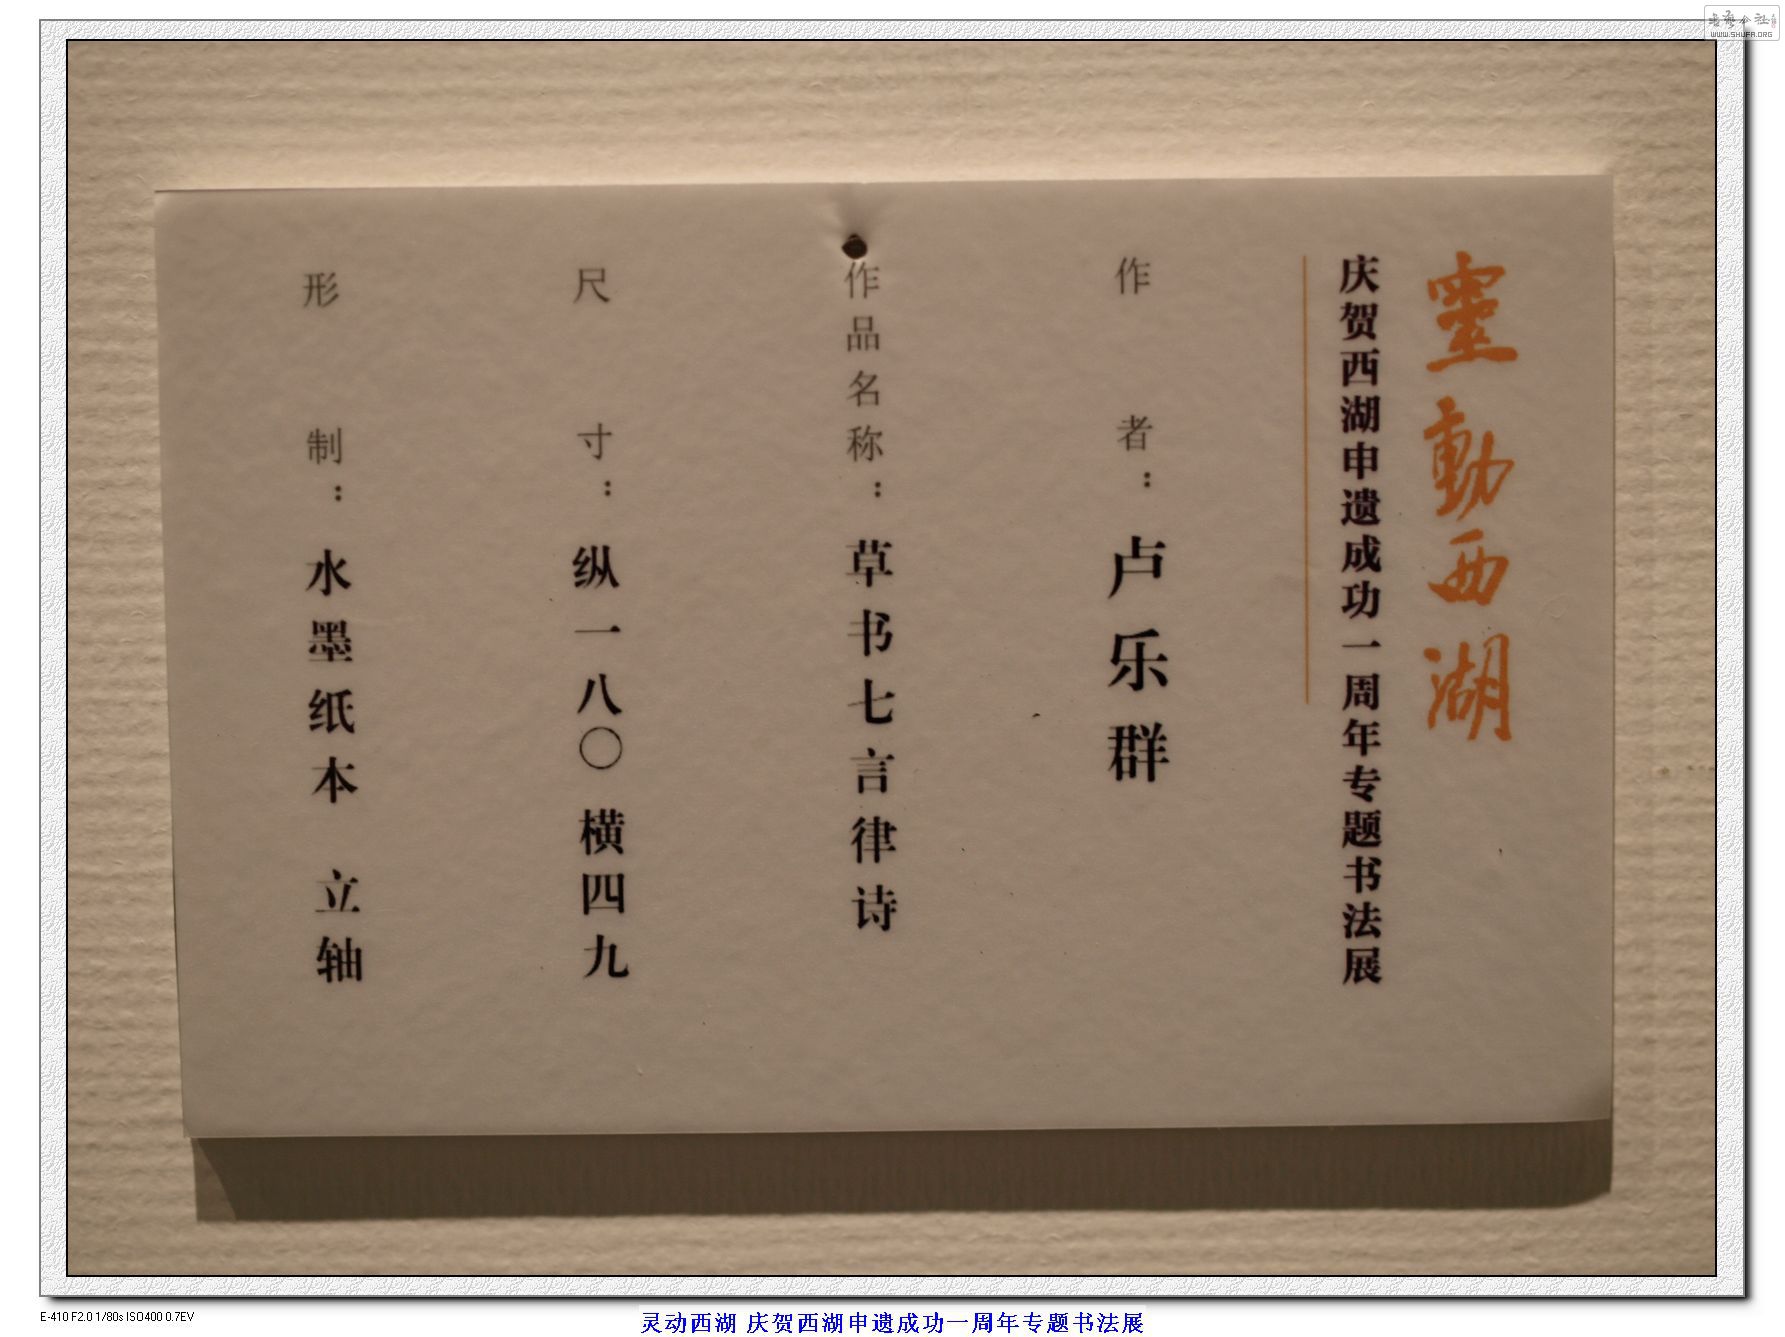 靈動西湖
庆贺西湖申遗成功一周年专题书法展
作者：卢乐群
作品名称：草书七言律诗
尺寸：纵一八〇横四九
形制：水墨纸本 立轴
WWW.SHUFA.ORG
E-410 F2.0 1/80s ISO400 0.7EV
灵动西湖 庆贺西湖申遗成功一周年专题书法展